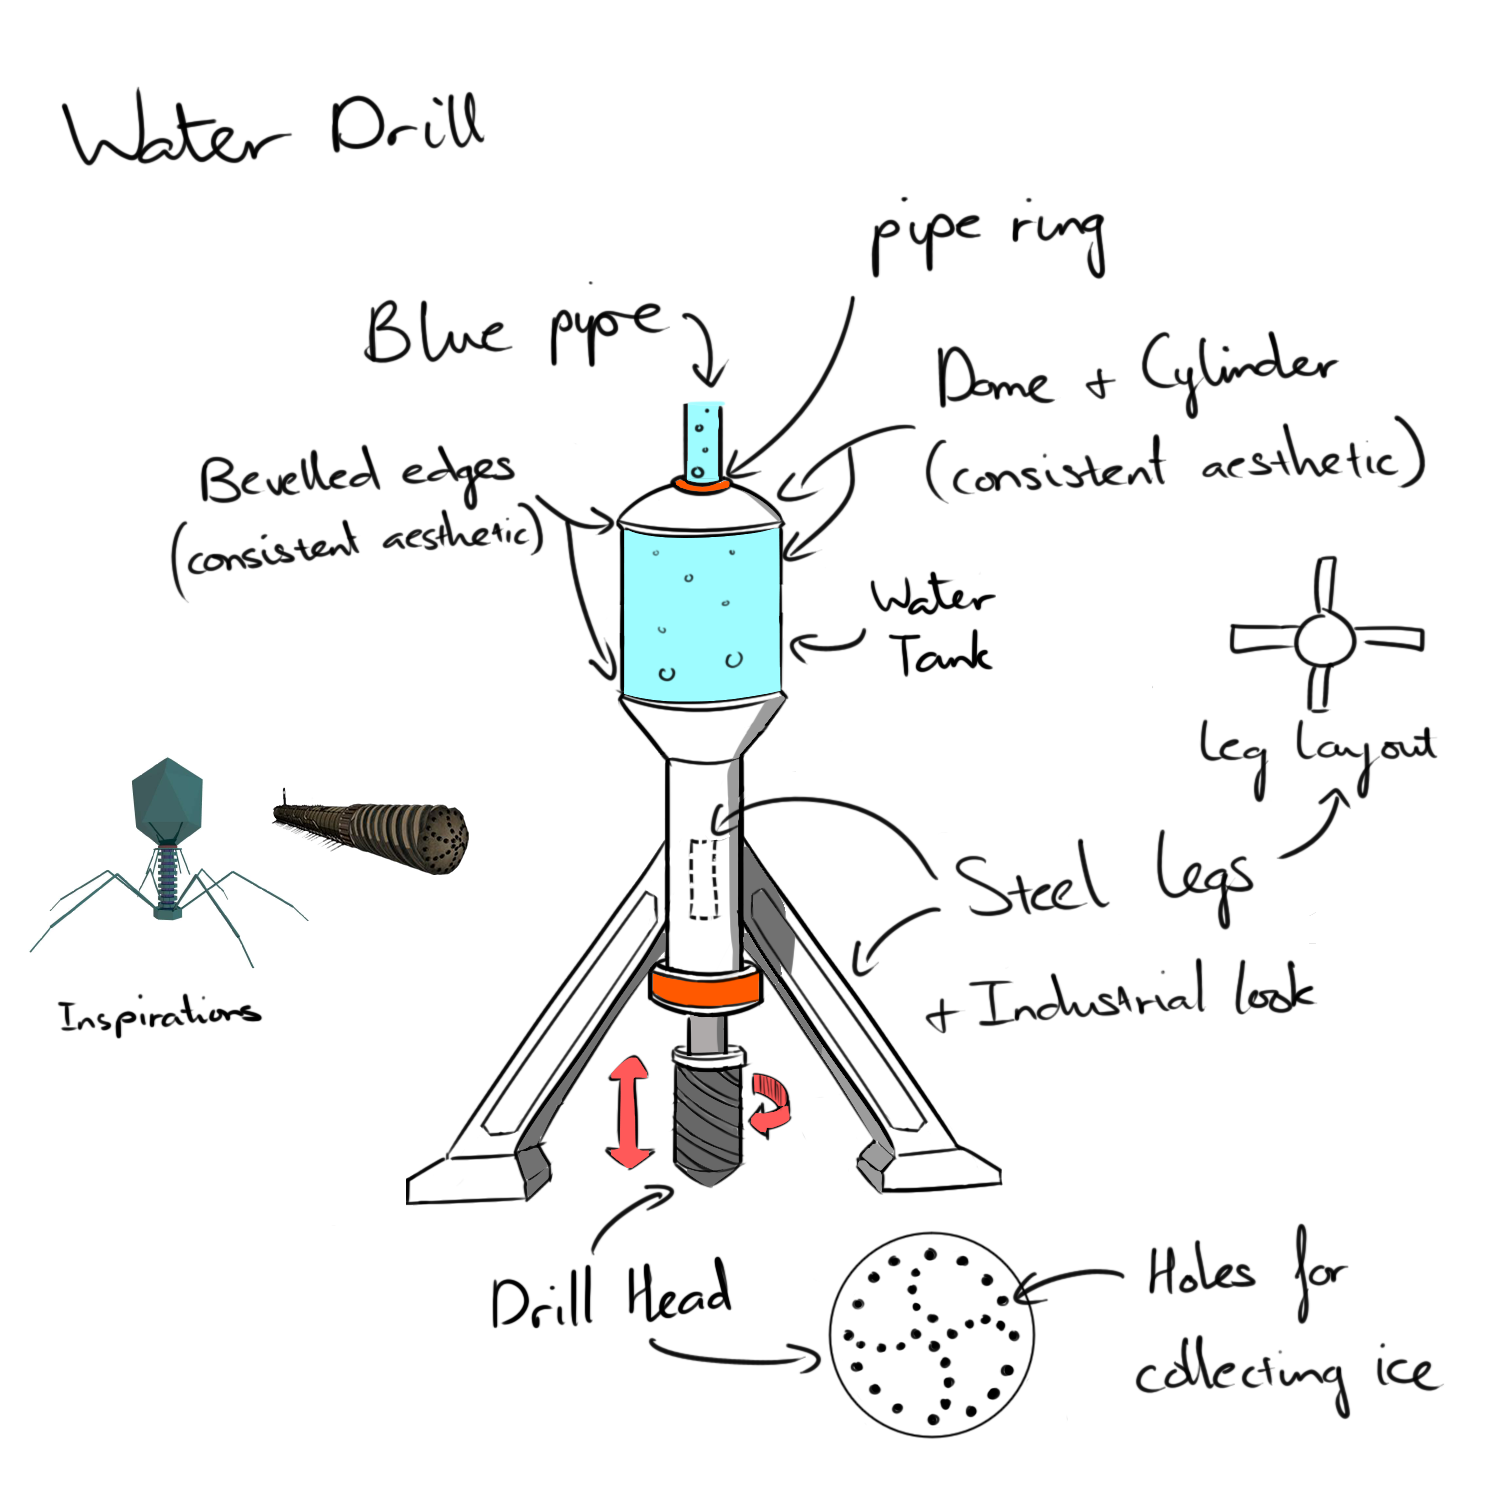 Water Drill
pipe ring
Blue pipe
Dome + Cylinder
(consistent aesthetic)
Bevelled edges
(consistent aesthetic)
Water
Tank
Leg Layout
Steel Legs
+ Industrial look
Inspirations
Drill Head
Holes for
collecting ice